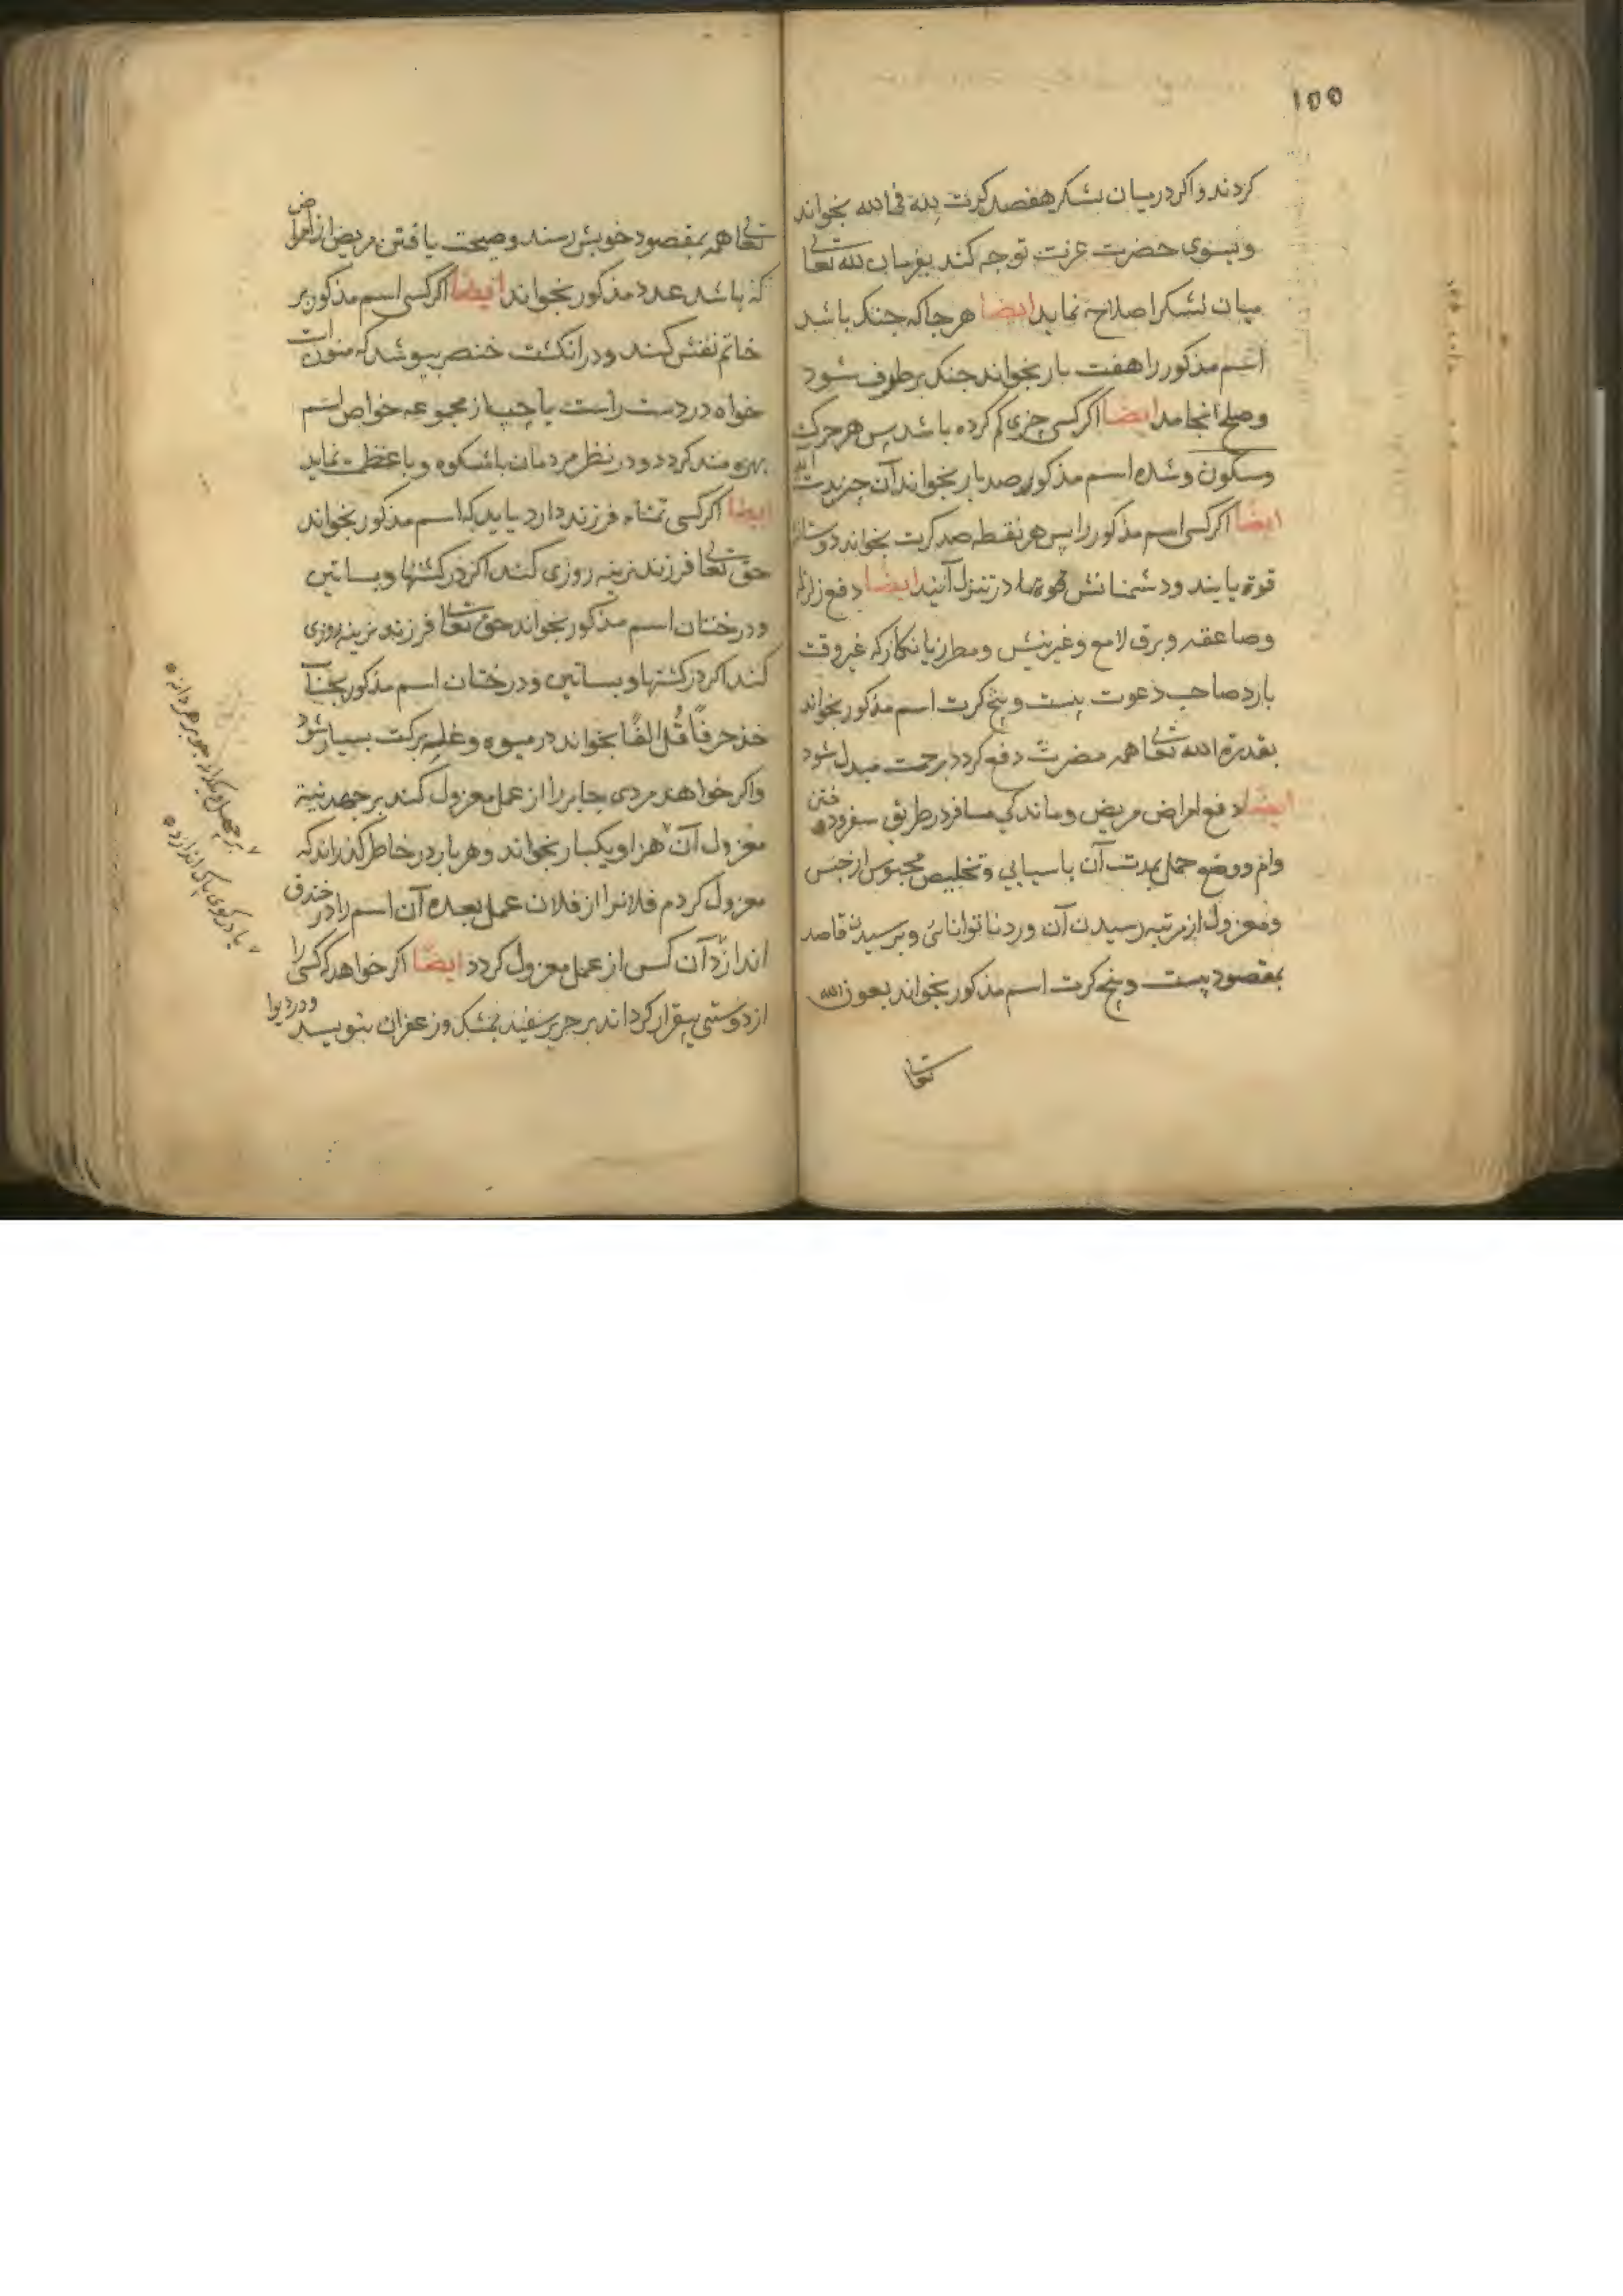 ۱۵۵
کردند و اکر در میان لشکر هفصد کرت بخواند
و بسوی حضرت عزت توجه کند بفرمان الله تعالی
میان لشکر اصلاح نماید ایضا هر جا که جنک باشد
اسم مذکور را هفت بار بخواند جنک برطرف شود
و صلح انجامد ایضا اکر کسی چیزی کم کرده باشد پس هر حرکت
و سکون و شده اسم مذکور صد بار بخواند آن چیز بدست
ایضا اکر کسی اسم مذکور را پس هر نقطه صد کرت بخواند
قوة یابند و دشمنانش در تنزل آنید ایضا دفع زلزله
و صاعقه و برق لامع و غیرینش و مطر زیانکار که غیر وقت
بارد صاحب دعوت بیست و پنج کرت اسم مذکور بخواند
بقدرة الله تعالی همه مضرت دفع کردد برحمت مبدل شود
ایضا دفع امراض مریض و ماندکی مسافر در طریق سفر و دفتن
وام و وضع حمل بمدت آن باسیابی و تخلیص محبوس از حبس
و معزول از مرتبه رسیدن آن و رد ناتوانائی و برسیدن قاصد
بمقصود بیست و پنج کرت اسم مذکور بخواند بعون الله
تعالی
تعالی همه بمقصود خویش رسند و صحت یافتن مریض از امراض
که باشد عدد مذکور بخواند ایضا اکر کسی اسم مذکور بر
خاتم نقش کند و در انکشت خنصر بپوشد که
خواه در دست راست یا چپ از مجموعه خواص اسم
بهره مند کردد و در نظر مردمان باشکوه و با عظمت نماید
ایضا اکر کسی تمناء فرزند دارد باید که اسم مذکور بخواند
حق تعالی فرزند نرینه روزی کند اکر در کشتها و بساتین
و درختان اسم مذکور بخواند حق تعالی فرزند نرینه روزی
کند اکر در کشتها و بساتین و درختان اسم مذکور
خذ حرفًا قُل الفًا بخواند در میوه و غله برکت بسیار شود
و اکر خواهند مردی جابر را از عمل معزول کند بر جهد نیة
معزول آن هزار و یکبار بخواند و هر بار در خاطر کذراند که
معزول کردم فلانرا از فلان عمل بعده آن اسم را در خندق
اندازد آن کس از عمل معزول کردد ایضًا اکر خواهد که کسی را
از دوستی بیقرار کرداند بر حریر سفید بمشک و زعفران بنویسد